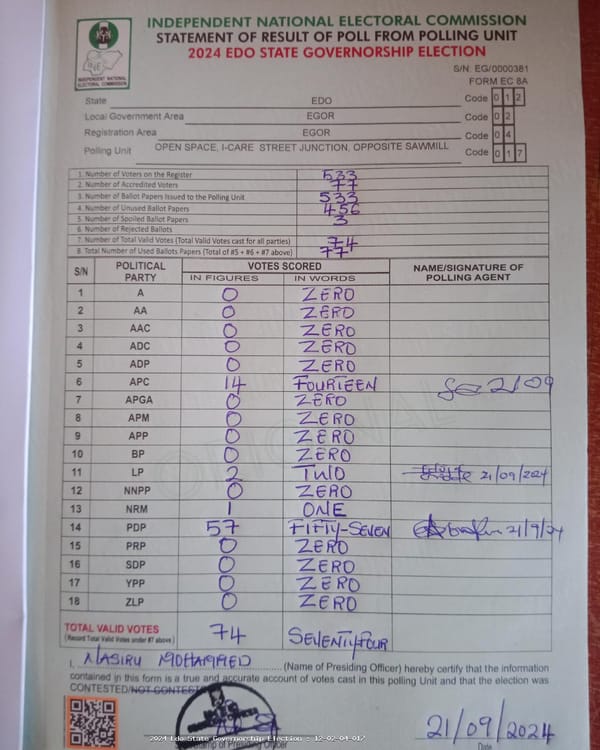 INDEPENDENT NATIONAL ELECTORAL COMMISSION
STATEMENT OF RESULT OF POLL FROM POLLING UNIT
2024 EDO STATE GOVERNORSHIP ELECTION
INDEPENDENT NATIONAL
ELECTORAL COMMISSION
S/N: EG/0000381
FORM EC 8A
State EDO Code 0 1 2
Local Government Area EGOR Code 0 2
Registration Area EGOR Code 0 4
Polling Unit OPEN SPACE, I-CARE STREET JUNCTION, OPPOSITE SAWMILL Code 0 1 7
1. Number of Voters on the Register 533
2. Number of Accredited Voters 77
3. Number of Ballot Papers Issued to the Polling Unit 533
4. Number of Unused Ballot Papers 456
5. Number of Spoiled Ballot Papers 3
6. Number of Rejected Ballots
7. Number of Total Valid Votes (Total Valid Votes cast for all parties) 74
8. Total Number of Used Ballots Papers (Total of #5 + #6 + #7 above) 77
S/N POLITICAL PARTY VOTES SCORED NAME/SIGNATURE OF POLLING AGENT
IN FIGURES IN WORDS
1 A 0 ZERO
2 AA 0 ZERO
3 AAC 0 ZERO
4 ADC 0 ZERO
5 ADP 0 ZERO
6 APC 14 FOURTEEN
7 APGA 0 ZERO
8 APM 0 ZERO
9 APP 0 ZERO
10 BP 0 ZERO
11 LP 2 TWO 21/09/2024
12 NNPP 0 ZERO
13 NRM 1 ONE
14 PDP 57 FIFTY-SEVEN 21/9/24
15 PRP 0 ZERO
16 SDP 0 ZERO
17 YPP 0 ZERO
18 ZLP 0 ZERO
TOTAL VALID VOTES 74 SEVENTYFOUR
(Record Total Valid Votes under #7 above)
I, NASIRU MOHAMMED (Name of Presiding Officer) hereby certify that the information
contained in this form is a true and accurate account of votes cast in this polling Unit and that the election was
CONTESTED/NOT CONTESTED
21/09/2024
2024 Edo State Governorship Election - 12-02-04-017
of Presiding Officer Date